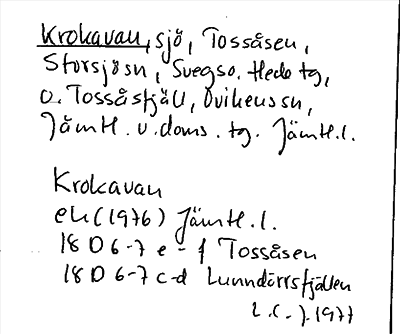 Krokavan, sjö, Tossåsen,
Storsjösn, Svegso. Hede tg,
o. Tossåsfjäll, Ovikens sn,
Jämtl. v. doms. tg. Jämtl. l.
Krokavan
ek (1976) Jämtl. l.
18 D 6-7 e - f Tossåsen
18 D 6-7 c-d Lunndörrsfjällen
1977